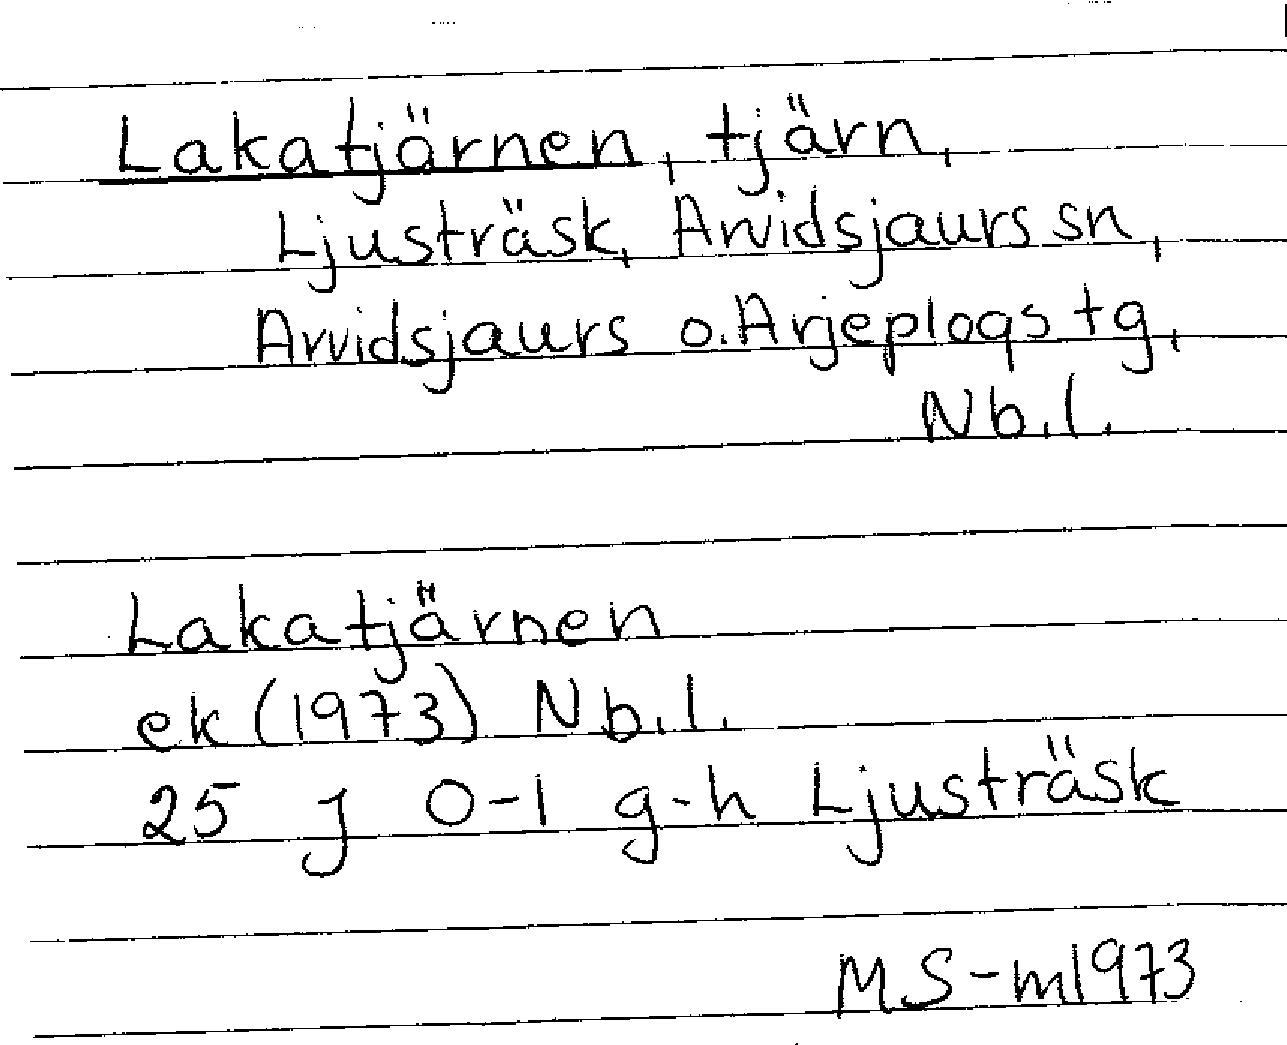 Lakatjärnen, tjärn,
Ljusträsk, Arvidsjaurs sn,
Arvidsjaurs o. Arjeplogs tg,
Nb.l.
Lakatjärnen
ek (1973) Nb.l.
25 J 0-1 g-h Ljusträsk
MS-m1973